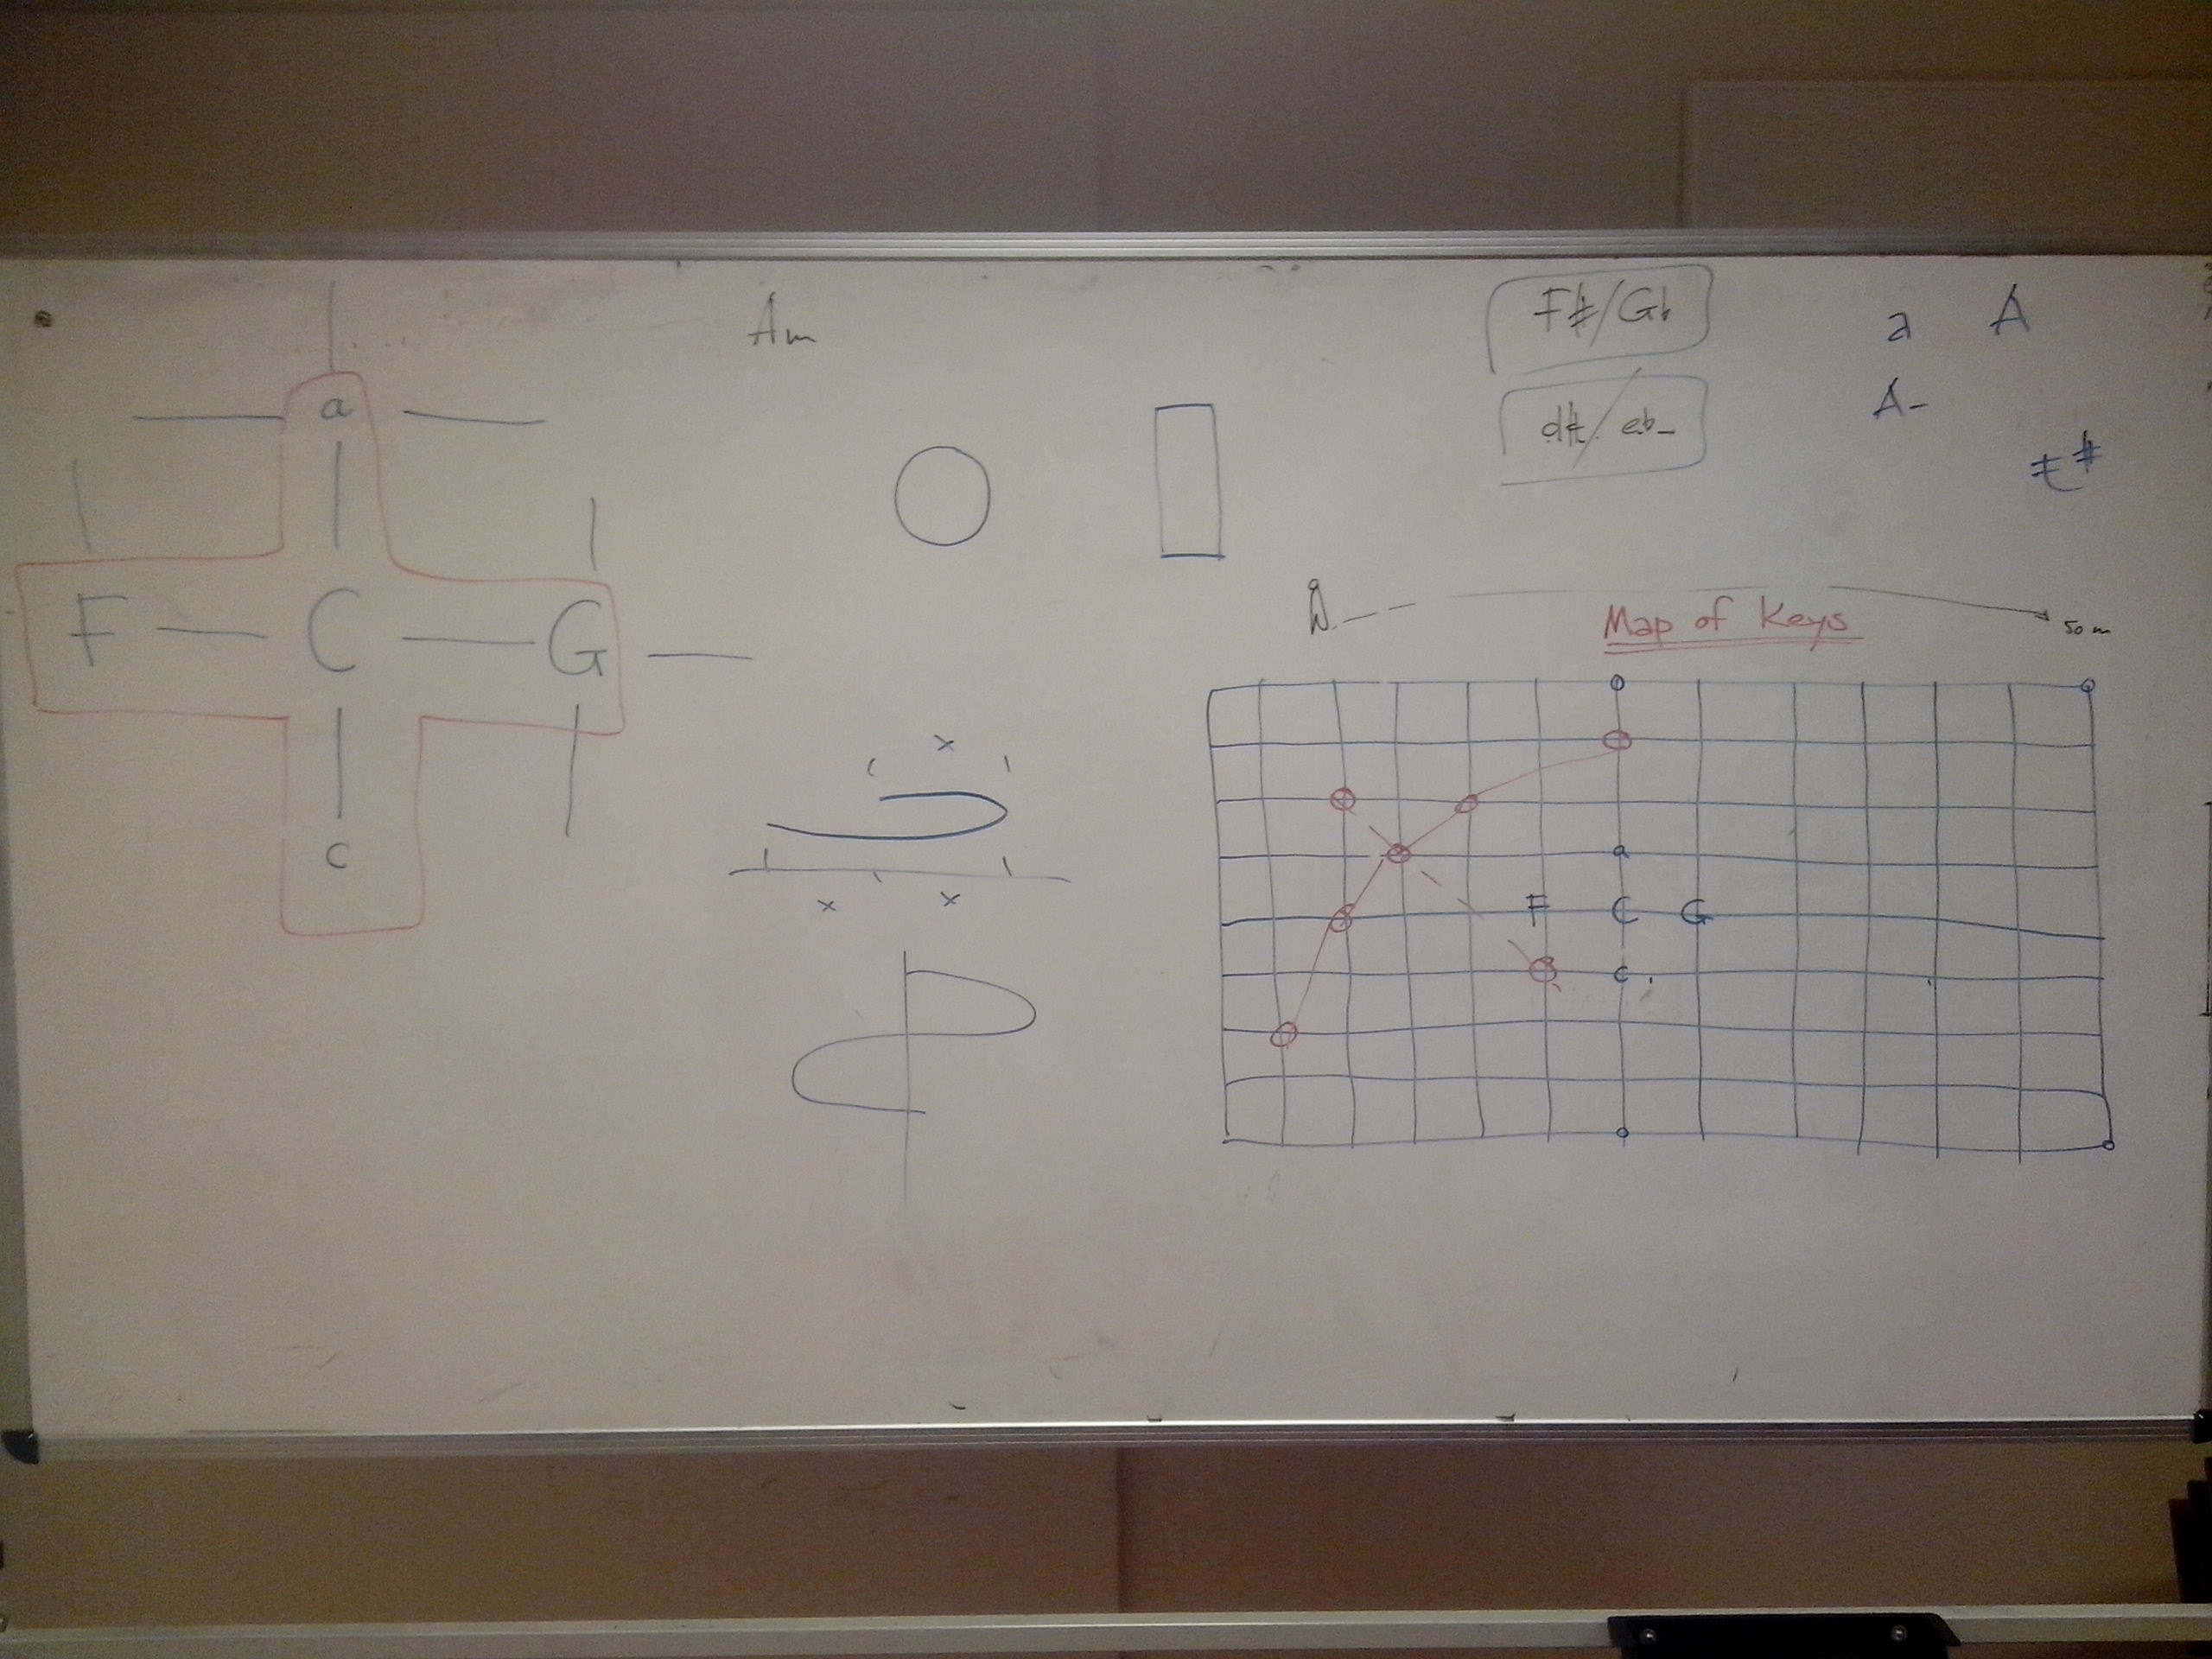 Am
F#/Gb
a A
d#/eb-
A-
#
a
F C G
c
Map of Keys
50 m
x
x x
a
F C G
c